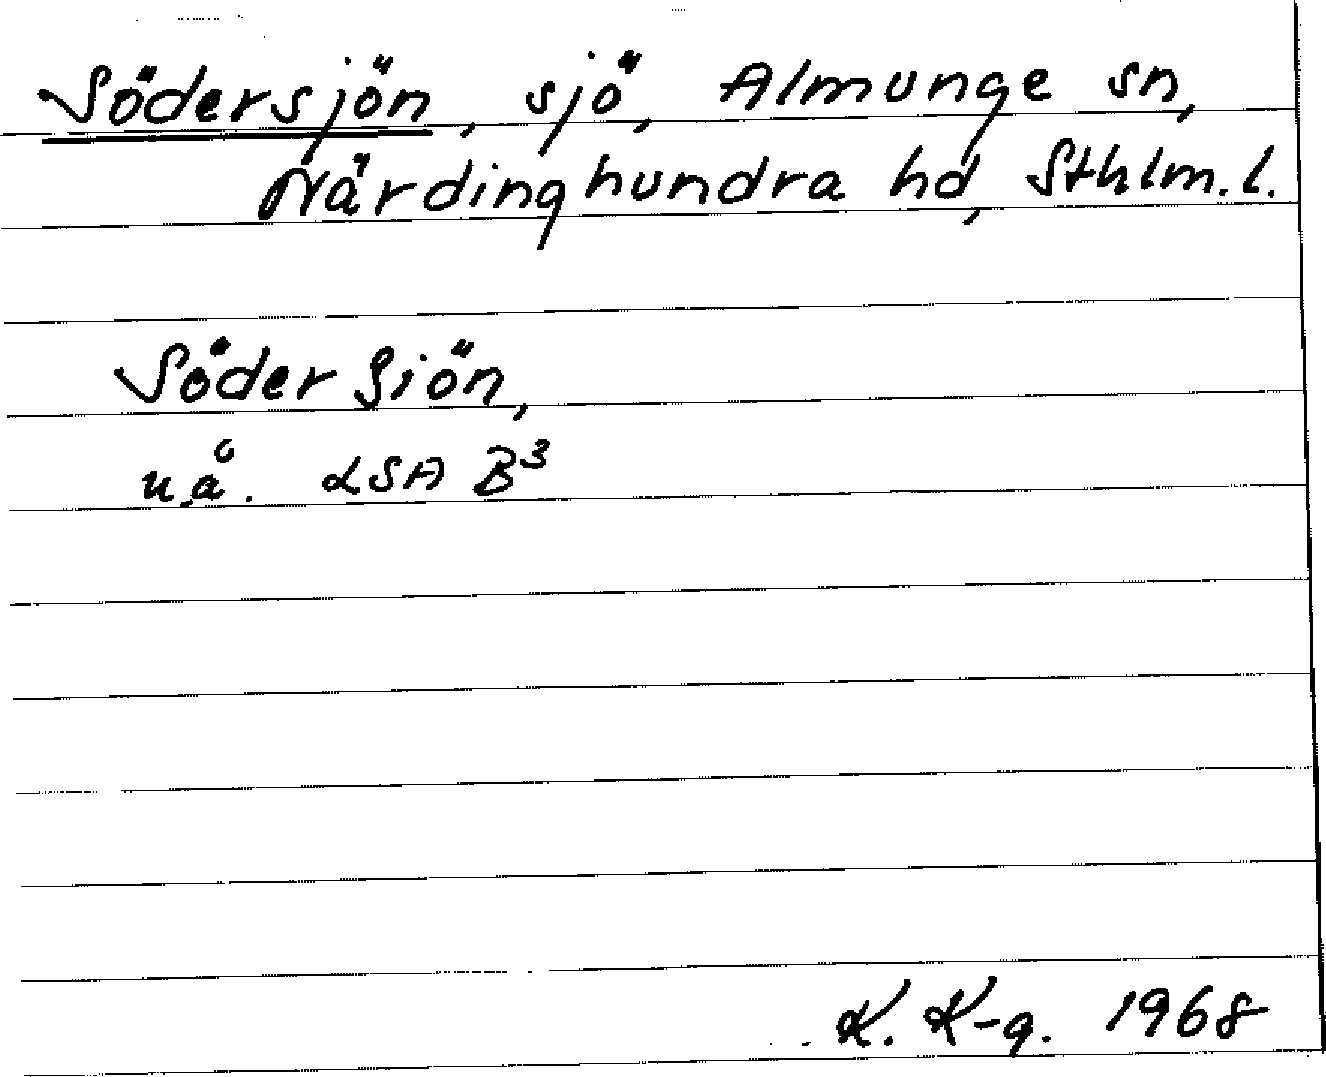 Södersjön, sjö, Almunge sn,
Närdinghundra hd, Sthlm.l.
Söder Siön,
u.å. LSA B³
K. K-g. 1968